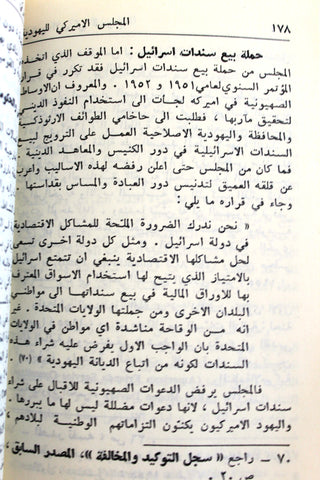 ١٧٨ المجلس الاميركي لليهودية
حملة بيع سندات اسرائيل : اما الموقف الذي اتخذه
المجلس من حملة بيع سندات اسرائيل فقد تكرر في قرار
المؤتمر السنوي لعامي ١٩٥١ و ١٩٥٢ . والمعروف ان الاوساط
الصهيونية في اميركه لجأت الى استخدام النفوذ الديني
لتحقيق مآربها ، فطلبت الى حاخامي الطوائف الارثوذكسية
والمحافظة واليهودية الاصلاحية العمل على الترويج لبيع
السندات الاسرائيلية في دور الكنيس والمعاهد الدينية .
فما كان من المجلس حتى اعلن رفضه لهذه الاساليب واعرب
عن قلقه العميق لتدنيس دور العبادة والمساس بقداستها .
وجاء في قراره ما يلي :
« نحن ندرك الضرورة الملحّة للمشاكل الاقتصادية
في دولة اسرائيل . ومثل كل دولة اخرى تسعى
لحل مشاكلها الاقتصادية ينبغي ان تتمتع اسرائيل
بالامتياز الذي يتيح لها استخدام الاسواق المعترف
بها للاوراق المالية في بيع سنداتها الى مواطني
البلدان الاخرى ومن جملتها الولايات المتحدة . غير
انه مـن الوقاحة مناشدة اي مواطن في الولايات
المتحدة بان الواجب الاول يفرض عليه شراء هذه
السندات لكونه من اتباع الديانة اليهودية » (٧٠)
فالمجلس يرفض الدعوات الصهيونية للاقبال على شراء
سندات اسرائيل ، لانها دعوات مضللة ليس لها ما يبررها .
واليهود الاميركيون يكنّون التزاماتهم الوطنية لبلادهم ،
٧٠ ـ راجع « سجل التوكيد والمخالفة »، المصدر السابق ،
ص ٢٠ .